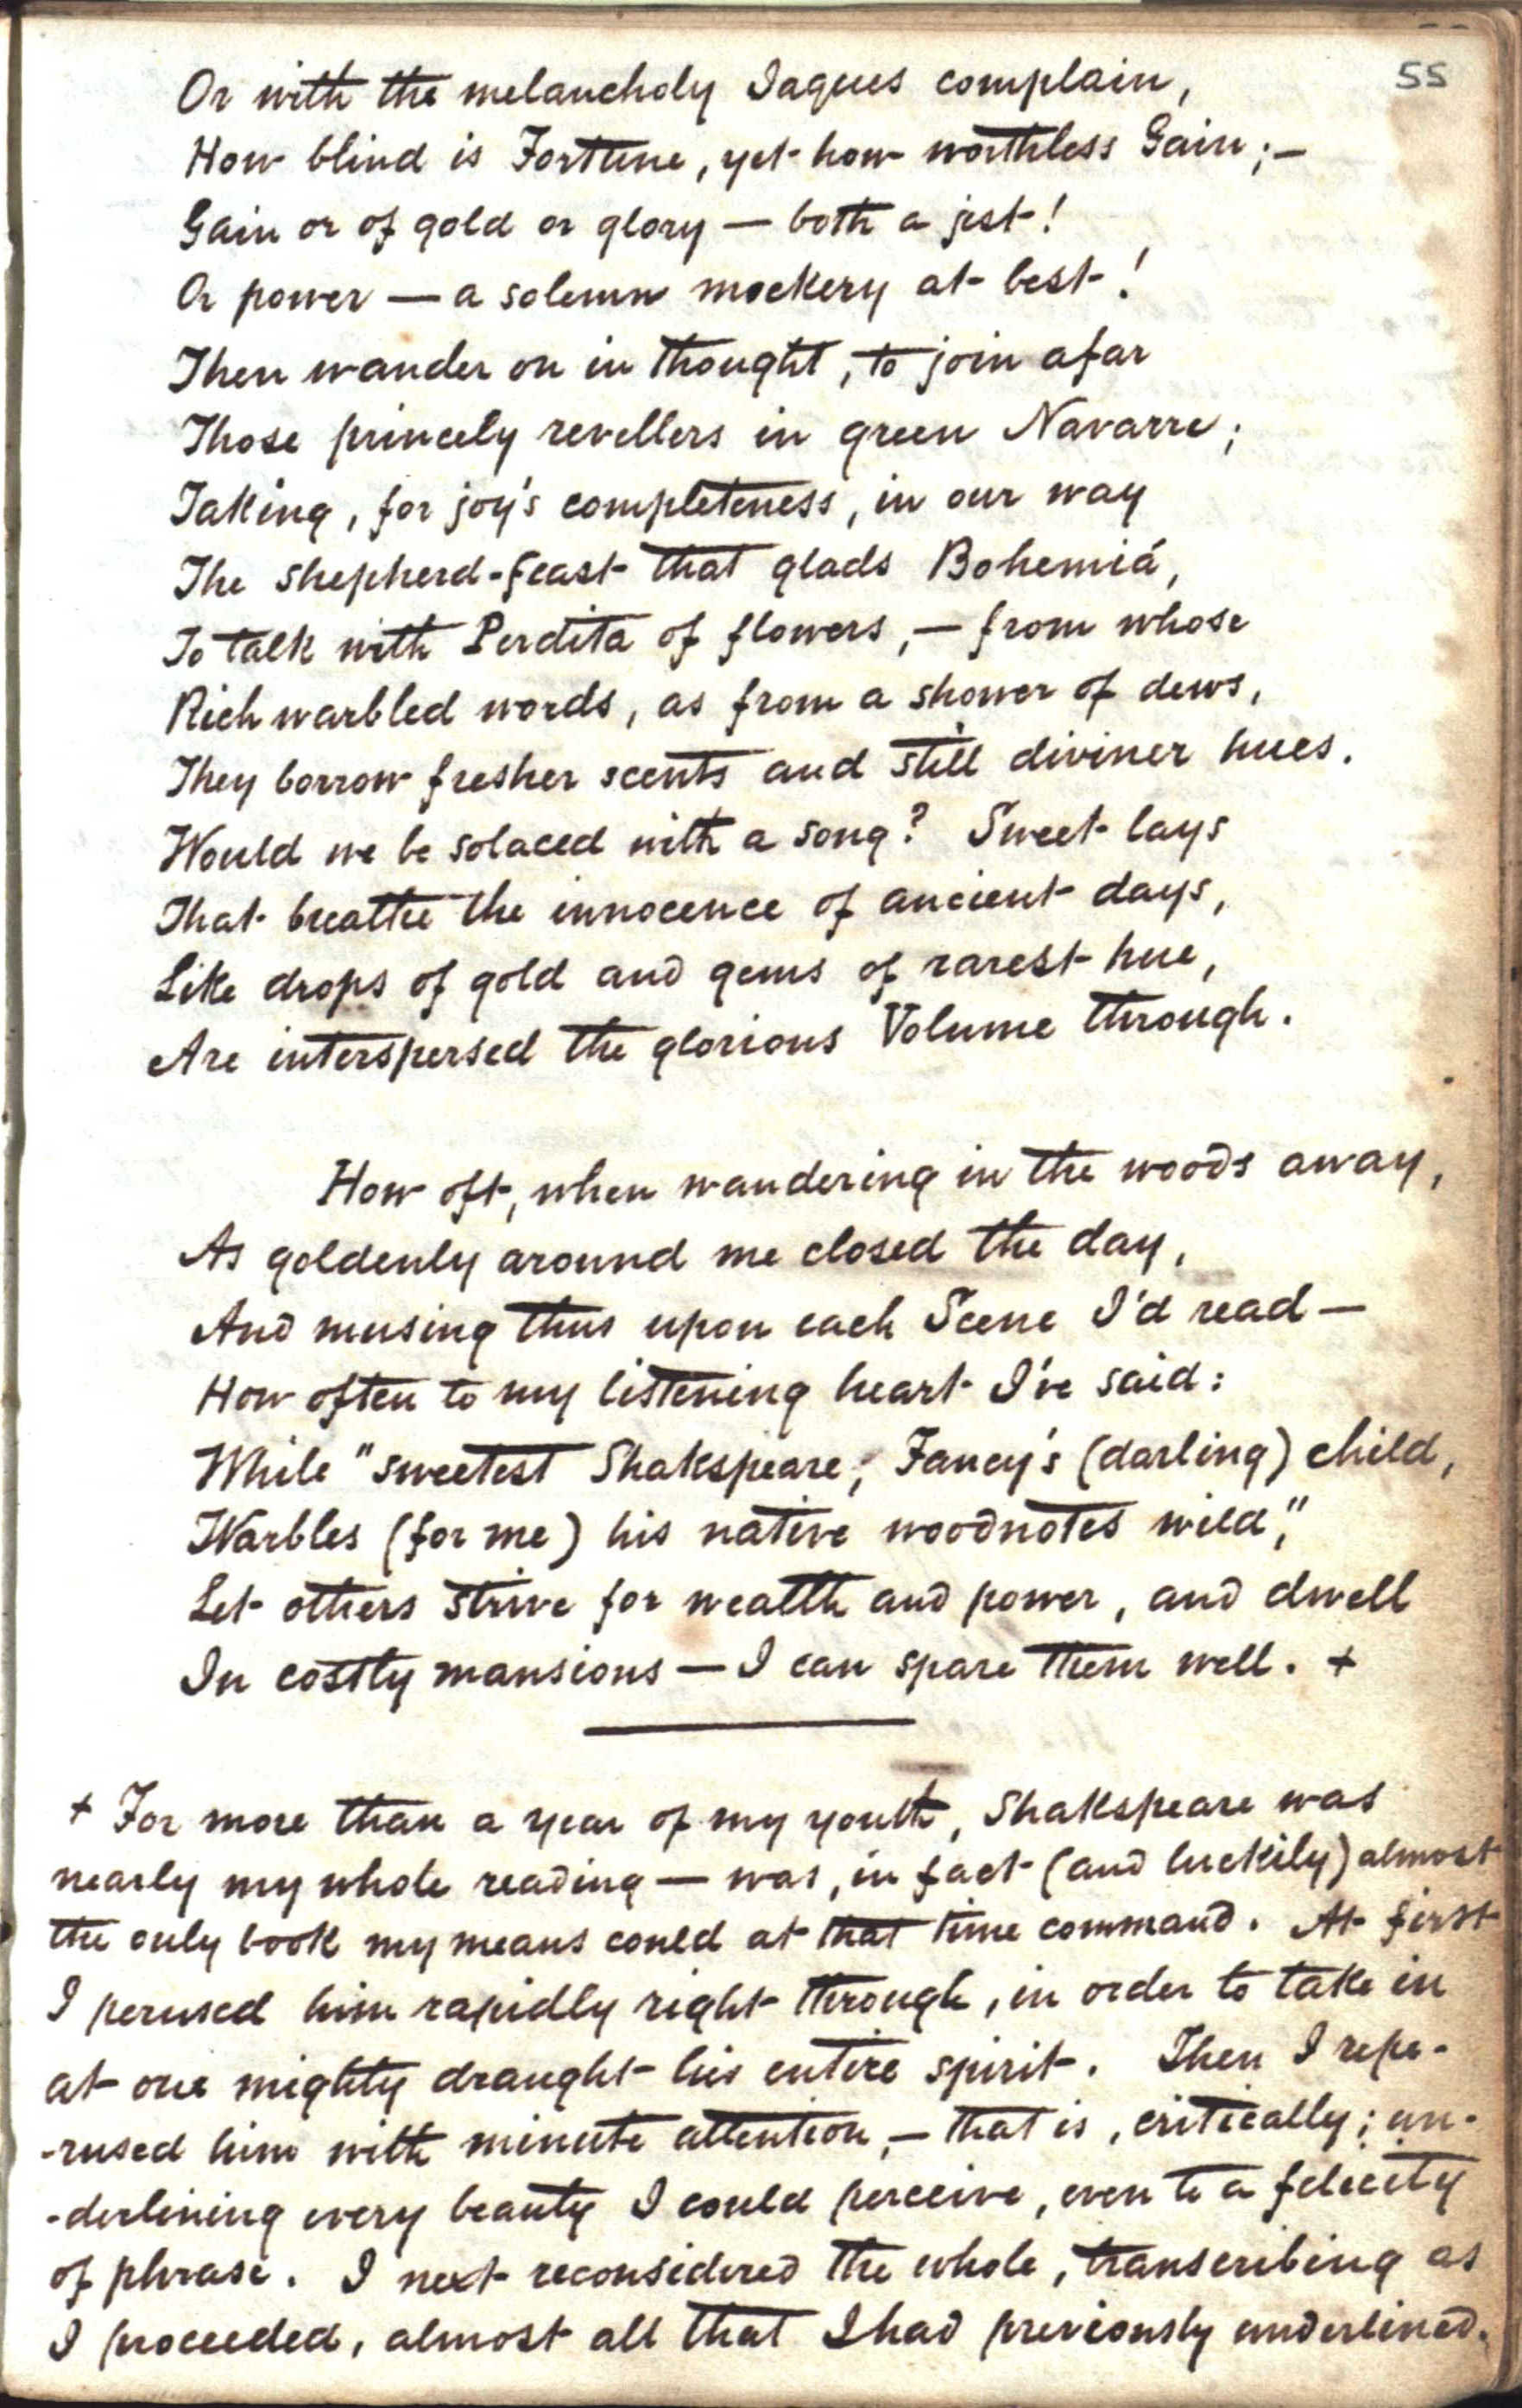 55
Or with the melancholy Jaques complain,
How blind is Fortune, yet how worthless Gain;—
Gain or of gold or glory — both a jest!
Or power — a solemn mockery at best!
Then wander on in thought, to join afar
Those princely revellers in green Navarre;
Taking, for joy's completeness, in our way
The shepherd-feast that glads Bohemiá,
To talk with Perdita of flowers, — from whose
Rich warbled words, as from a shower of dews,
They borrow fresher scents and still diviner hues.
Would we be solaced with a song? Sweet lays
That breathe the innocence of ancient days,
Like drops of gold and gems of rarest hue,
Are interspersed the glorious Volume through.
How oft, when wandering in the woods away,
As goldenly around me closed the day,
And musing thus upon each Scene I'd read —
How often to my listening heart I've said:
While "sweetest Shakspeare, Fancy's (darling) child,
Warbles (for me) his native woodnotes wild,"
Let others strive for wealth and power, and dwell
In costly mansions — I can spare them well. +
+ For more than a year of my youth, Shakspeare was
nearly my whole reading — was, in fact (and luckily) almost
the only book my means could at that time command. At first
I perused him rapidly right through, in order to take in
at one mighty draught his entire spirit. Then I repe-
-rused him with minute attention, — that is, critically; un-
-derlining every beauty I could perceive, even to a felicity
of phrase. I next reconsidered the whole, transcribing as
I proceeded, almost all that I had previously underlined.